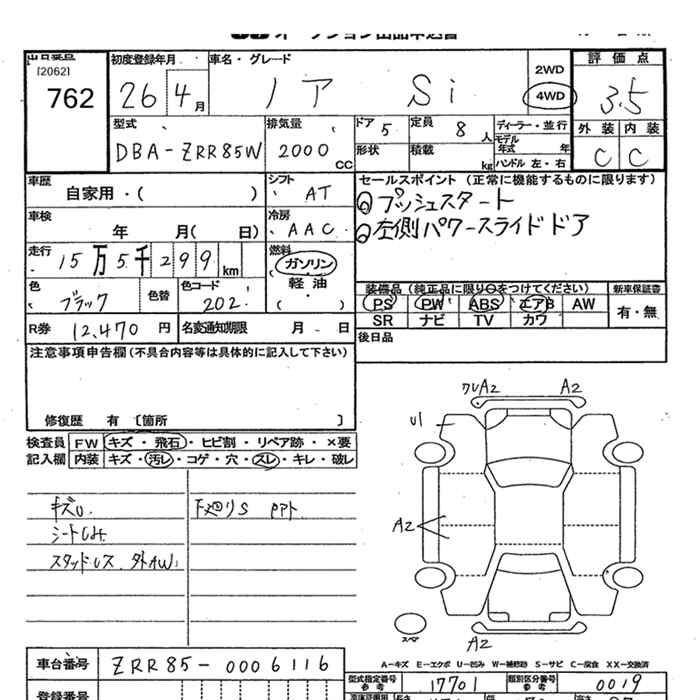 出品番号
[2062]
762
初度登録年月
26 4月
車名・グレード
ノア Si
2WD
4WD
評価点
3.5
外装 内装
C C
型式
DBA-ZRR85W
排気量
2000 CC
ドア 5
形状
定員 8人
積載 kg
ディーラー・並行
モデル年式 年
ハンドル 左・右
車歴
自家用・( )
シフト
AT
セールスポイント (正常に機能するものに限ります)
プッシュスタート
左側パワースライドドア
車検
年 月( 日)
冷房
AAC
走行
15万5千299km
燃料
ガソリン
軽油
( )
色
ブラック
色替
色コード
202
装備品 (純正品に限り○をつけてください)
PS PW ABS エアB AW
SR ナビ TV カワ
新車保証書
有・無
R券 12,470円
名変通知期限 月 日
後日品
注意事項申告欄(不具合内容等は具体的に記入して下さい)
修復歴 有 〔箇所 〕
検査員 FW キズ・飛石・ヒビ割・リペア跡・×要
記入欄 内装 キズ・汚レ・コゲ・穴・スレ・キレ・破レ
キズU
下廻りS PPト
スタッドレス 外AW
ワレA2 A2
U1
A2
スペア
A2
A-キズ E-エクボ U-凹み W-補修跡 S-サビ C-腐食 XX-交換済
車台番号 ZRR85-0006116
型式指定番号 参考 17701
類別区分番号 参考 0019
登録番号